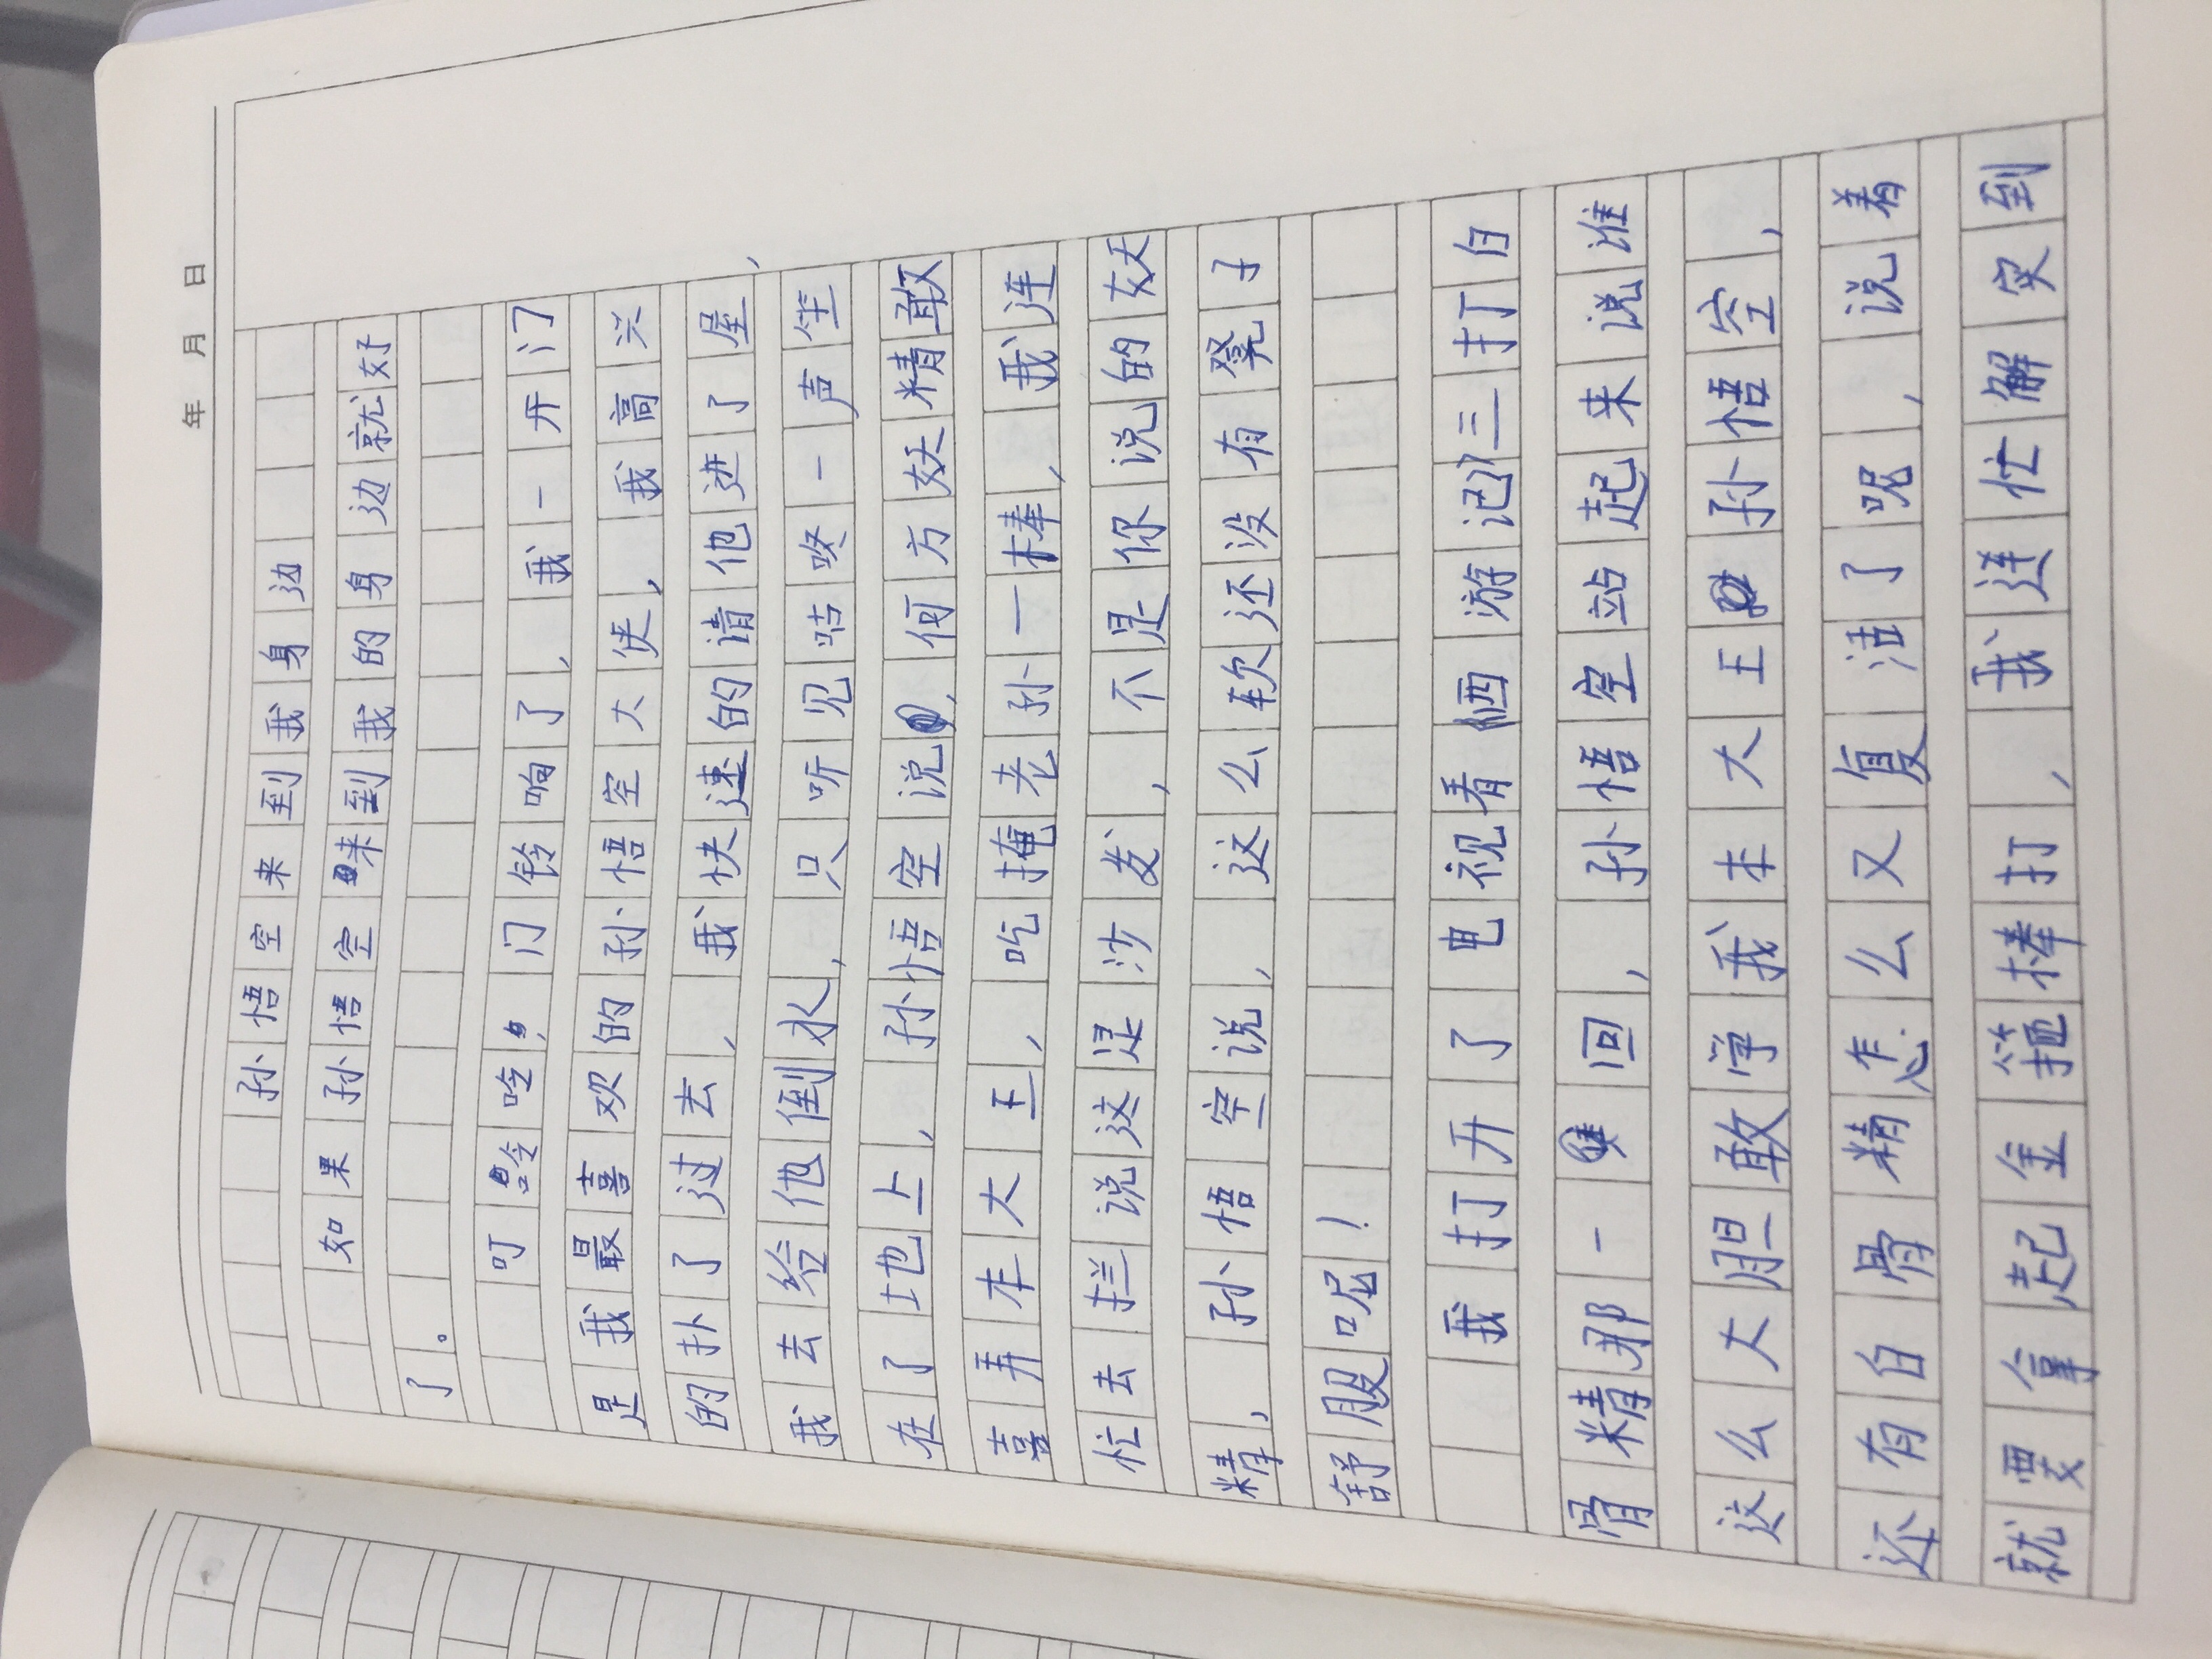 年 月 日
孙悟空来到我身边
如果孙悟空来到我的身边就好
了。
叮呤吟,门铃响了,我一开门
是我最喜欢的孙悟空大侠,我高兴
的扑了过去,我快速的请他进了屋,
我去给他倒水,只听见咕咚一声坐
在了地上,孙悟空说,何方妖精敢
喜弄本大王,吃掩老孙一棒,我连
忙去拦说这是沙发,不是你说的妖
精,孙悟空说,这么软还没有凳子
舒服呢!
我打开了电视看西游记三打白
骨精那一回,孙悟空站起来说谁
这么大胆敢学我本大王孙悟空,
还有白骨精怎么又复活了呢,说着
就要拿起金箍棒打,我连忙解突到